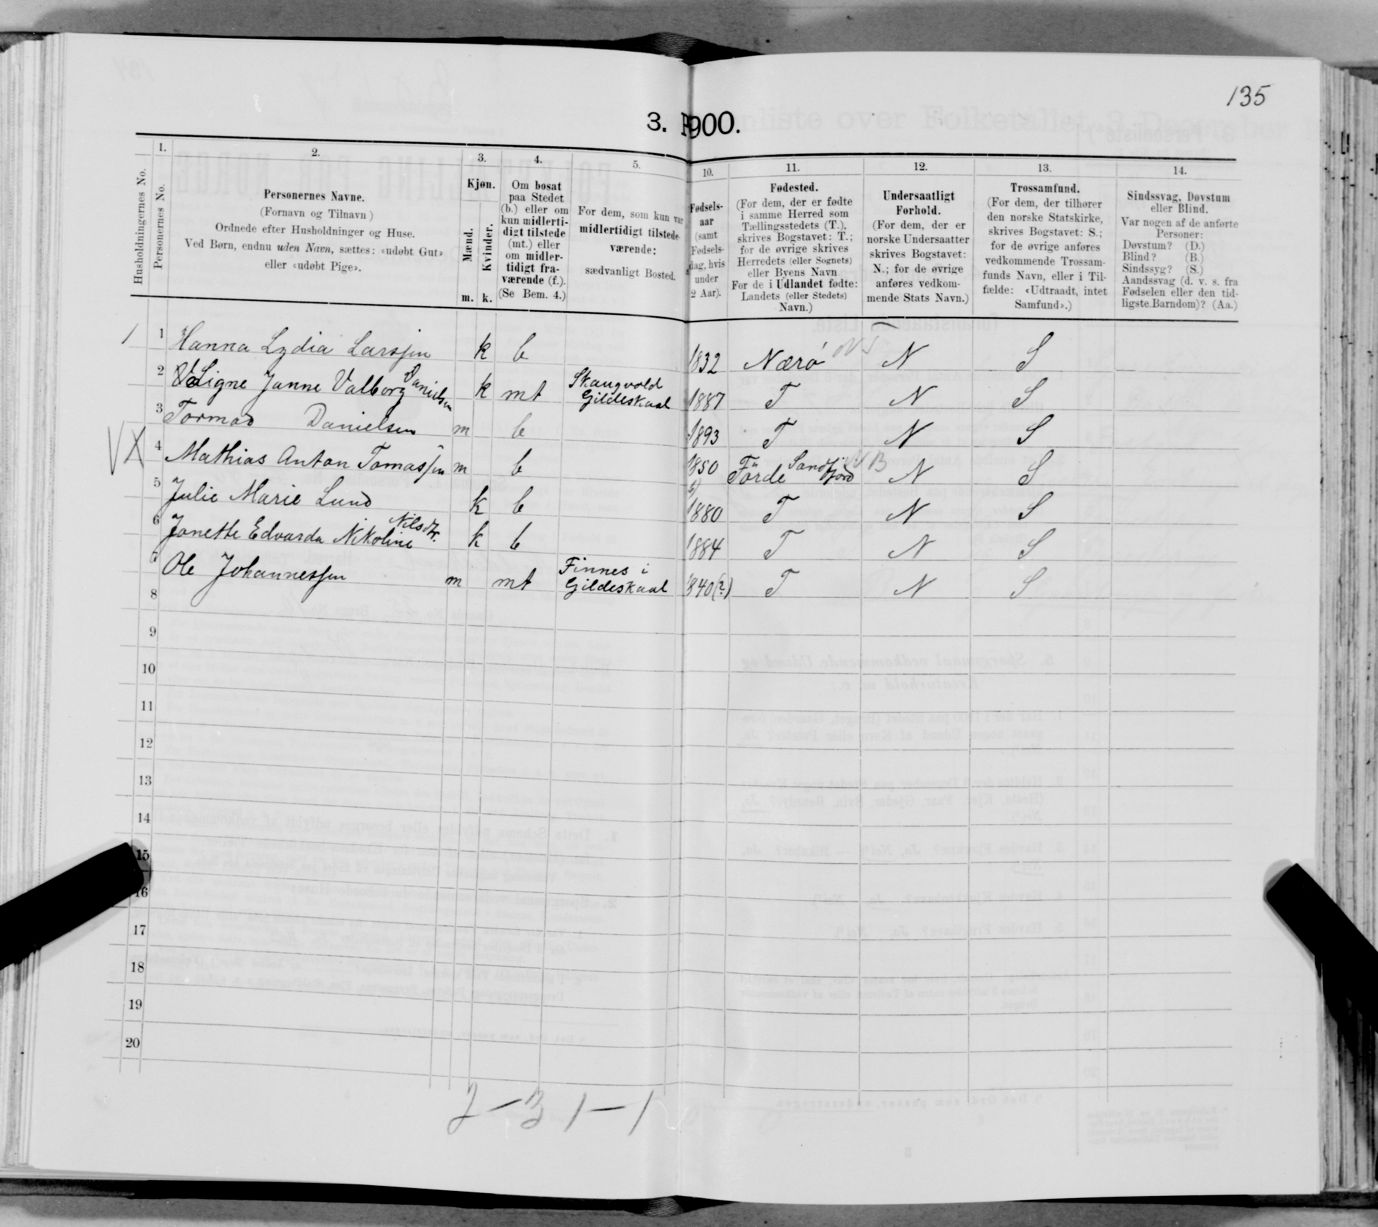 135
3. 1900.
1. 2. 3. 4. 5. 10. 11. 12. 13. 14.
Husholdningernes No.
Personernes No.
Personernes Navne.
(Fornavn og Tilnavn)
Ordnede efter Husholdninger og Huse.
Ved Børn, endnu uden Navn, sættes: «udøbt Gut»
eller «udøbt Pige».
Kjøn.
Mænd.
Kvinder.
m. k.
Om bosat
paa Stedet
(b.) eller om
kun midlerti-
digt tilstede
(mt.) eller
om midler-
tidigt fra-
værende (f.).
(Se Bem. 4.)
For dem, som kun var
midlertidigt tilstede-
værende:
sædvanligt Bosted.
Fødsels-
aar
(samt
Fødsels-
dag, hvis
under
2 Aar).
Fødested.
(For dem, der er fødte
i samme Herred som
Tællingsstedets (T.),
skrives Bogstavet: T.;
for de øvrige skrives
Herredets (eller Sognets)
eller Byens Navn
For de i Udlandet fødte:
Landets (eller Stedets)
Navn.)
Undersaatligt
Forhold.
(For dem, der er
norske Undersaatter
skrives Bogstavet:
N.; for de øvrige
anføres vedkom-
mende Stats Navn.)
Trossamfund.
(For dem, der tilhører
den norske Statskirke,
skrives Bogstavet: S.;
for de øvrige anføres
vedkommende Trossam-
funds Navn, eller i Til-
fælde: «Udtraadt, intet
Samfund».)
Sindssvag, Døvstum
eller Blind.
Var nogen af de anførte
Personer:
Døvstum? (D.)
Blind? (B.)
Sindssyg? (S.)
Aandssvag (d. v. s. fra
Fødselen eller den tid-
ligste Barndom)? (Aa.)
1 1 Hanna Lydia Larssen k b 1832 Nærø N S
2 Signe Janne Valborg Danielsen k mt Skaugvold Gildeskaal 1887 T N S
3 Tormod Danielsen m b 1893 T N S
4 Mathias Anton Tomassen m b 1850 Förde Sandfjord N S
5 Julie Marie Lund k b 1880 T N S
6 Janette Edvarda Nikoline Nilsdtr. k b 1884 T N S
7 Ole Johannessen m mt Finnes i Gildeskaal 1840(?) T N S
8
9
10
11
12
13
14
15
16
17
18
19
20